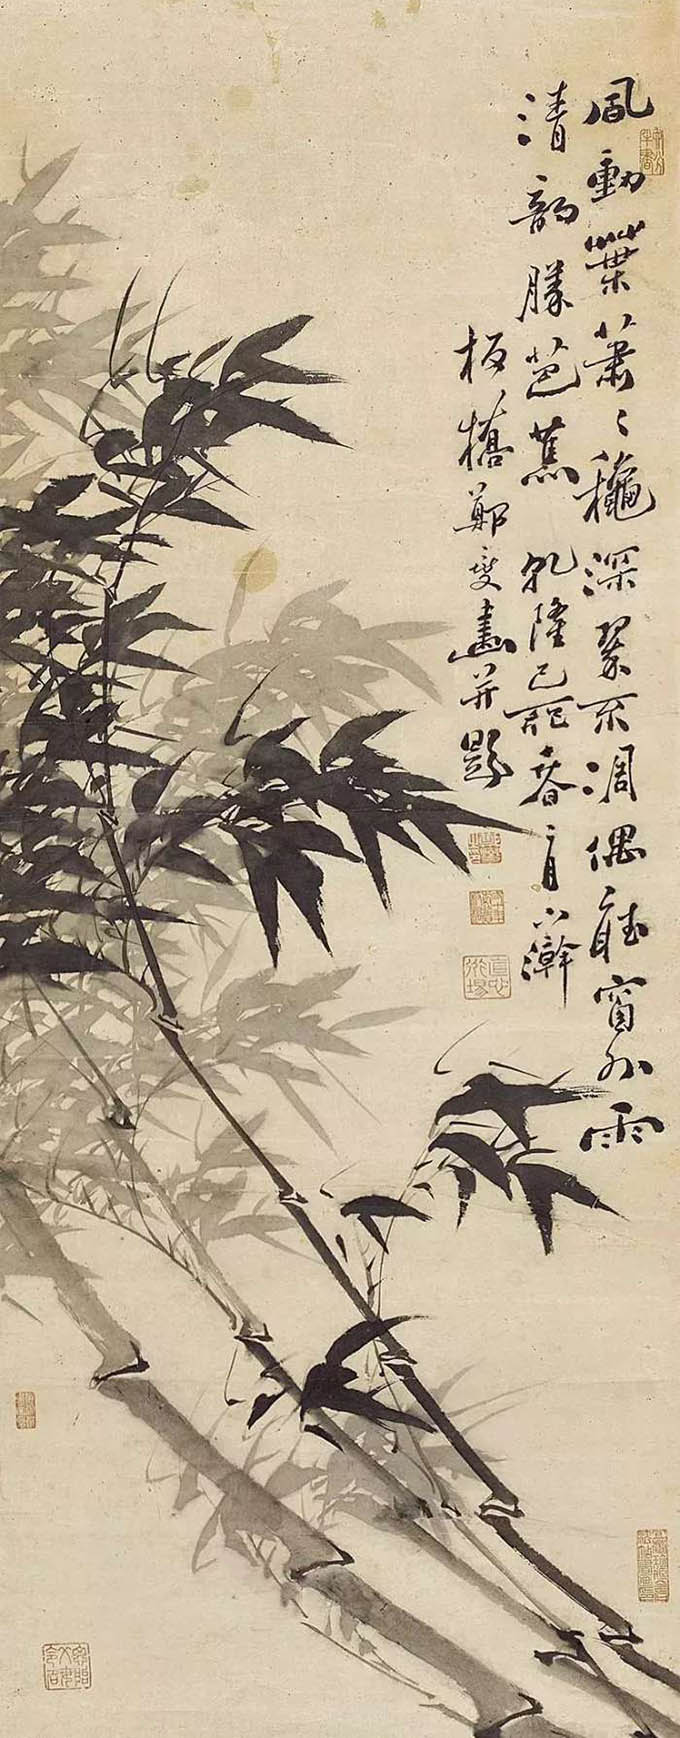 風動葉蕭〻穐深翠不凋偶聽窗外雨
清韻勝芭蕉 乾隆己巳春月小澣
板橋鄭燮畫并題